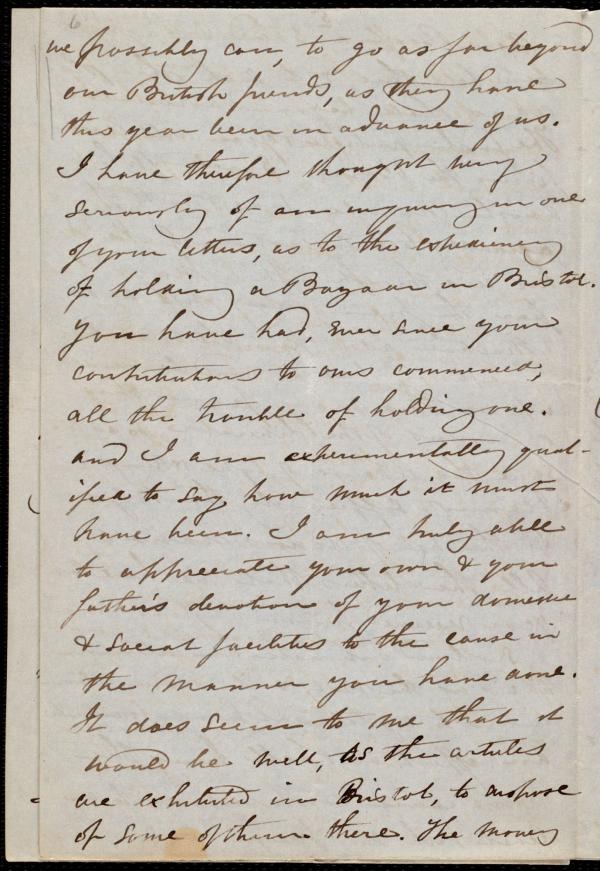 6
we possibly can, to go as far beyond
our British friends, as they have
this year been in advance of us.
I have therefore thought very
seriously of an inquiry in one
of your letters, as to the expediency
of holding a Bazaar in Bristol.
You have had, ever since your
contributions to ours commenced,
all the trouble of holding one.
and I am experimentally qual-
ified to say how much it must
have been. I am truly able
to appreciate your own & your
father's devotion of your domestic
& social facilities to the cause in
the manner you have done.
It does seem to me that it
would be well, as the articles
are exhibited in Bristol, to dispose
of some of them there. The money